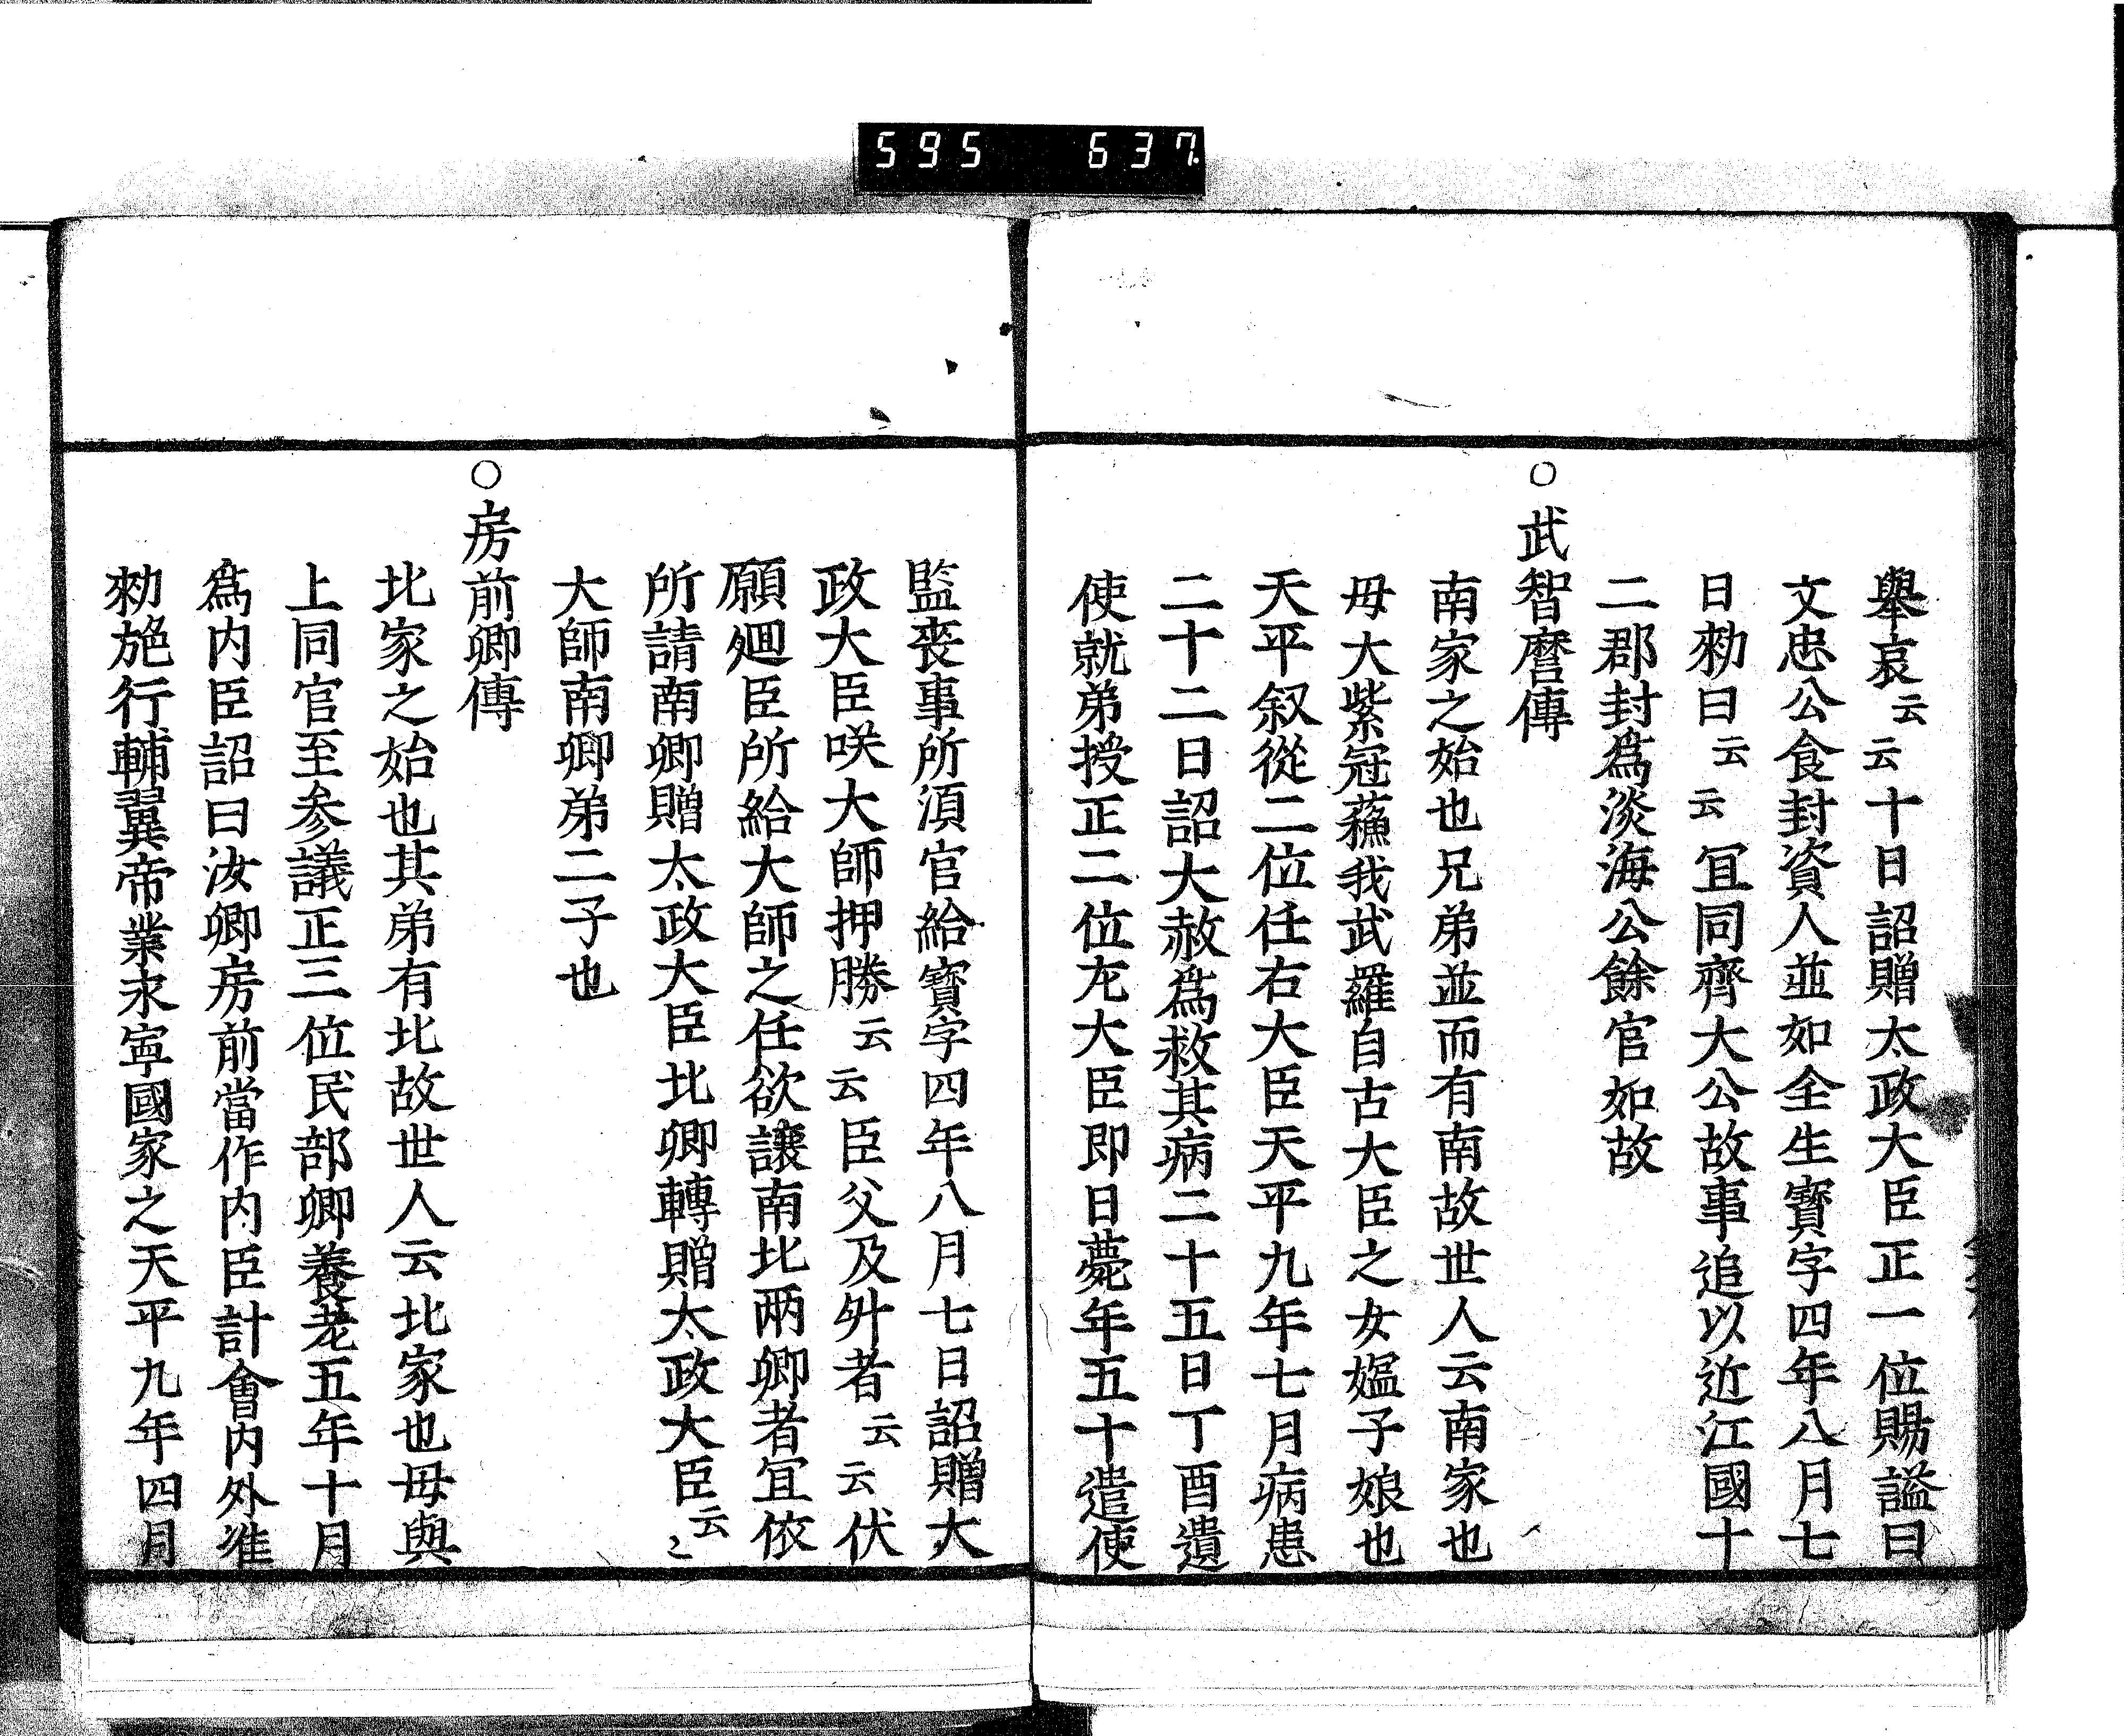 595 637
舉哀云云十日詔贈太政大臣正一位賜謚曰
文忠公食封資人並如全生寶字四年八月七
日勑曰云云冝同齊大公故事追以近江國十
二郡封爲淡海公餘官如故
○武智麿傳
南家之始也兄弟並而有南故世人云南家也
母大紫冠蘓我武羅自古大臣之女媼子娘也
天平叙從二位任右大臣天平九年七月病患
二十二日詔大赦爲救其病二十五日丁酉遺
使就弟授正二位左大臣即日薨年五十遣使
監喪事所湏官給寳字四年八月七日詔贈太
政大臣咲大師押勝云云臣父及舛者云云伏
願廻臣所給大師之任欲讓南北兩卿者冝依
所請南卿贈太政大臣北卿轉贈太政大臣云〻
大師南卿弟二子也
○房前卿傳
北家之始也其弟有北故世人云北家也母與
上同官至参議正三位民部卿養老五年十月
爲内臣詔曰汝卿房前當作内臣計會内外准
勑施行輔翼帝業永寧國家之天平九年四月